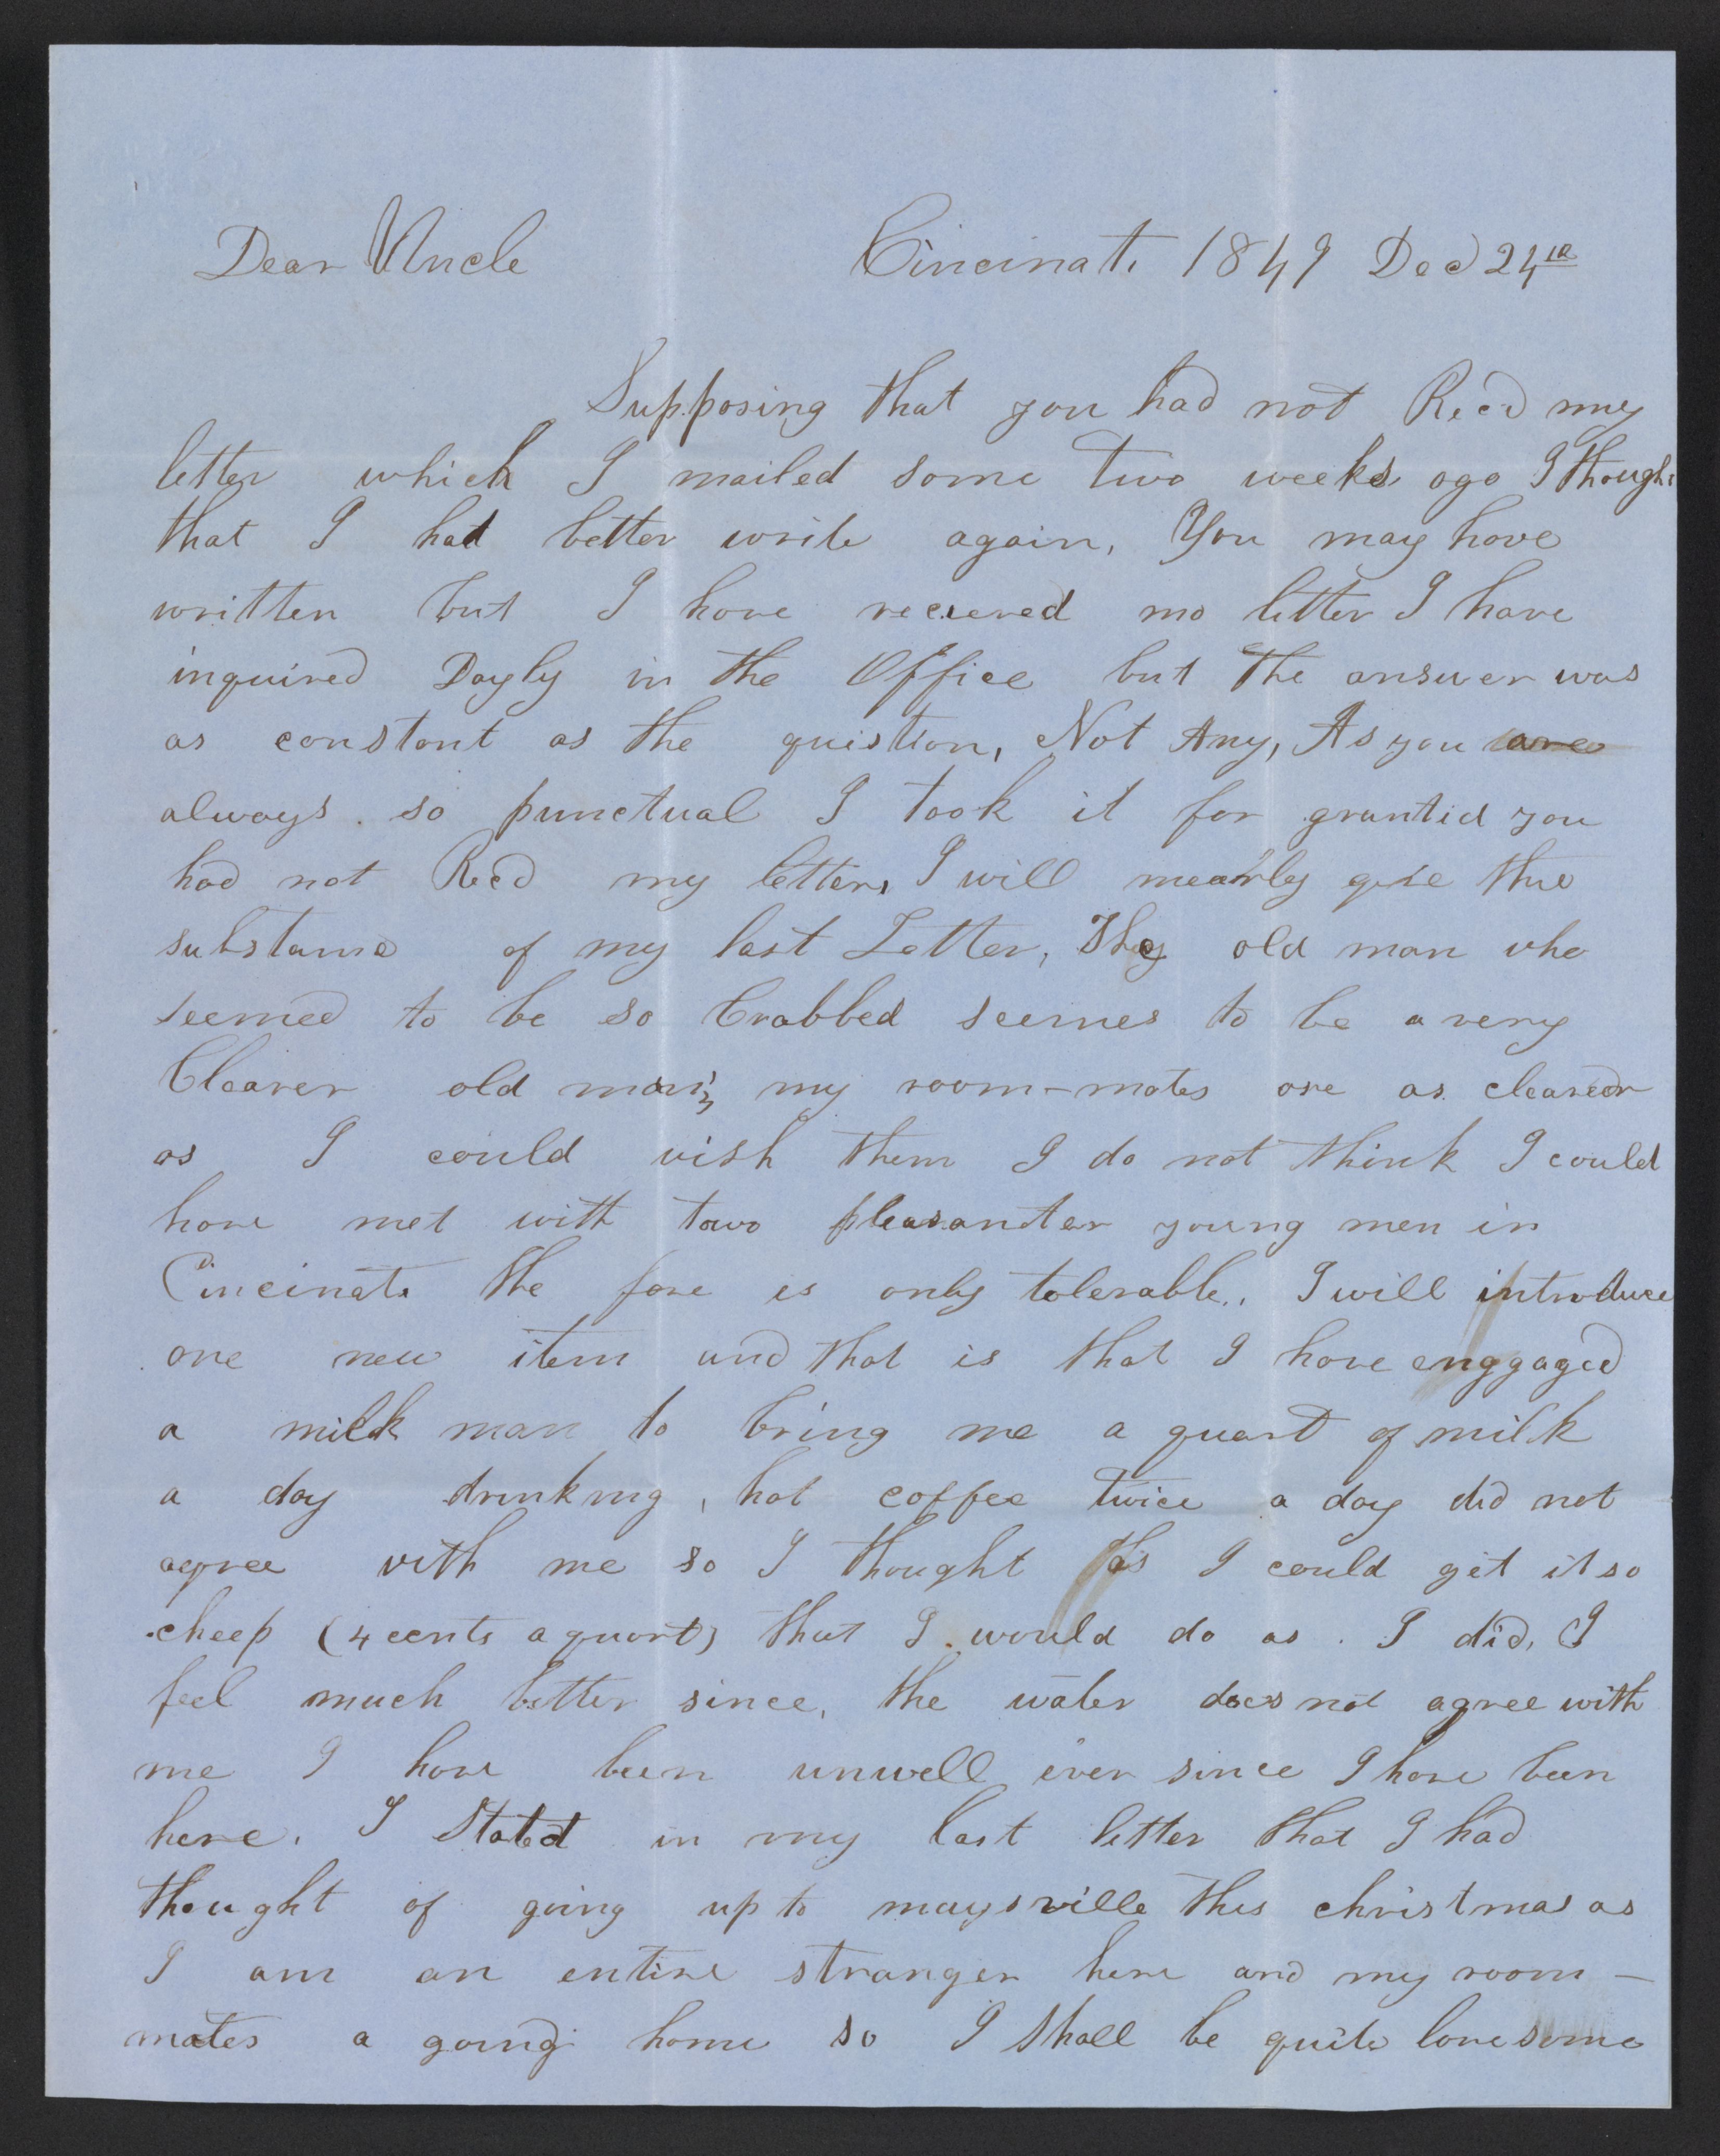 Dear Uncle Cincinati 1849 Dec 24th
Supposing that you had not Recd my
letter which I mailed some two weeks ago I thought
that I had better write again, You may have
written but I have recieved no letter I have
inquired Dayly in the Office but the answer was
as constant as the quistion, Not Any, As you are
always so punctual I took it for grantid you
had not Recd my letter, I will mearly give the
substance of my last Letter, The old man who
seemed to be so Crabbed seemes to be a very
Cleaver old man, my room-mates are as cleaver
as I could wish them I do not think I could
have met with towo pleasanter young men in
Cincinati the fare is only tolerable. I will introduce
one new item and that is that I have enggaged
a milk man to bring me a quart of milk
a day drinking, hot coffee twice a day did not
agree with me so I thought as I could git it so
cheep (4 cents a quart) that I would do as I did, I
feel much better since, the water does not agree with
me I have been unwell ever since I have been
here. I Stated in my last letter that I had
thought of going up to maysville this christmas as
I am an entire stranger here and my room-
mates a going home so I shall be quite lonesome